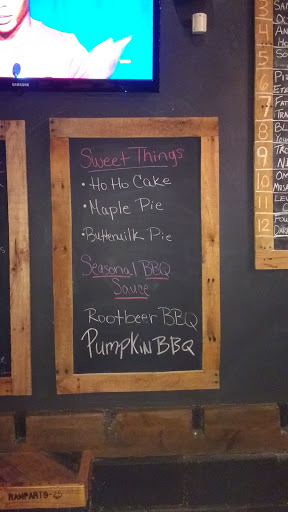 SAMSUNG
Sweet Things
• Ho Ho Cake
• Maple Pie
• Buttermilk Pie
Seasonal BBQ
Sauce
Rootbeer BBQ
Pumpkin BBQ
3
4
5
6
7
8
9
10
11
12
RAMPARTS